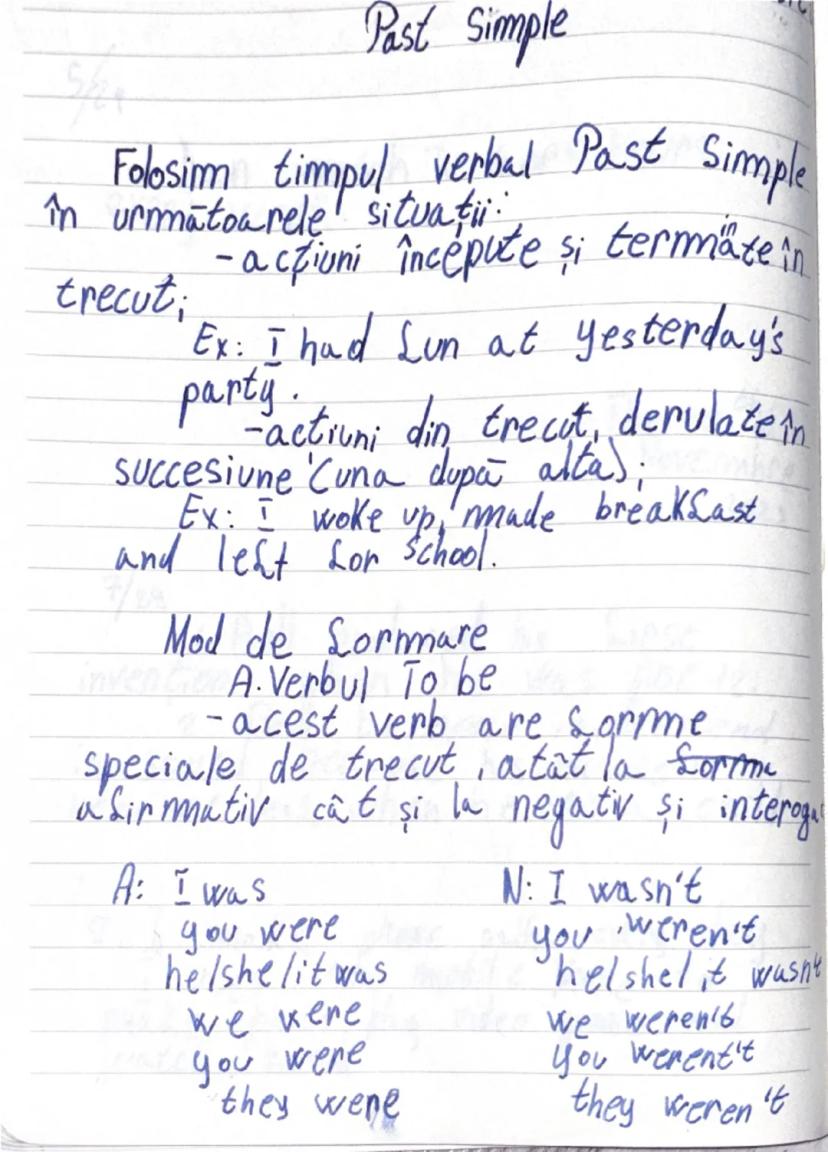 Past Simple
Folosim timpul verbal Past Simple
în următoarele situații:
- acțiuni începute și terminate în
trecut;
Ex: I had fun at yesterday's
party.
- actiuni din trecut, derulate în
succesiune (una după alta);
Ex: I woke up, made breakfast
and left for school.
Mod de formare
A. Verbul To be
- acest verb are forme
speciale de trecut, atât la forma
afirmativ cât și la negativ și interoga
A: I was N: I wasn't
you were you weren't
he/she/it was he/she/it wasn't
we were we weren't
you were you werent't
they were they weren't